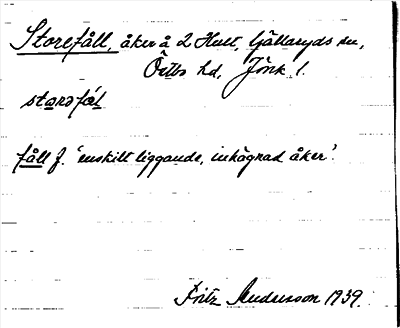 Storefåll, åker å 2 Hult, Gällaryds sn,
Östbo hd, Jönk. l.
fåll f. 'enskilt liggande, inhägnad åker'.
Fritz Andersson 1939.